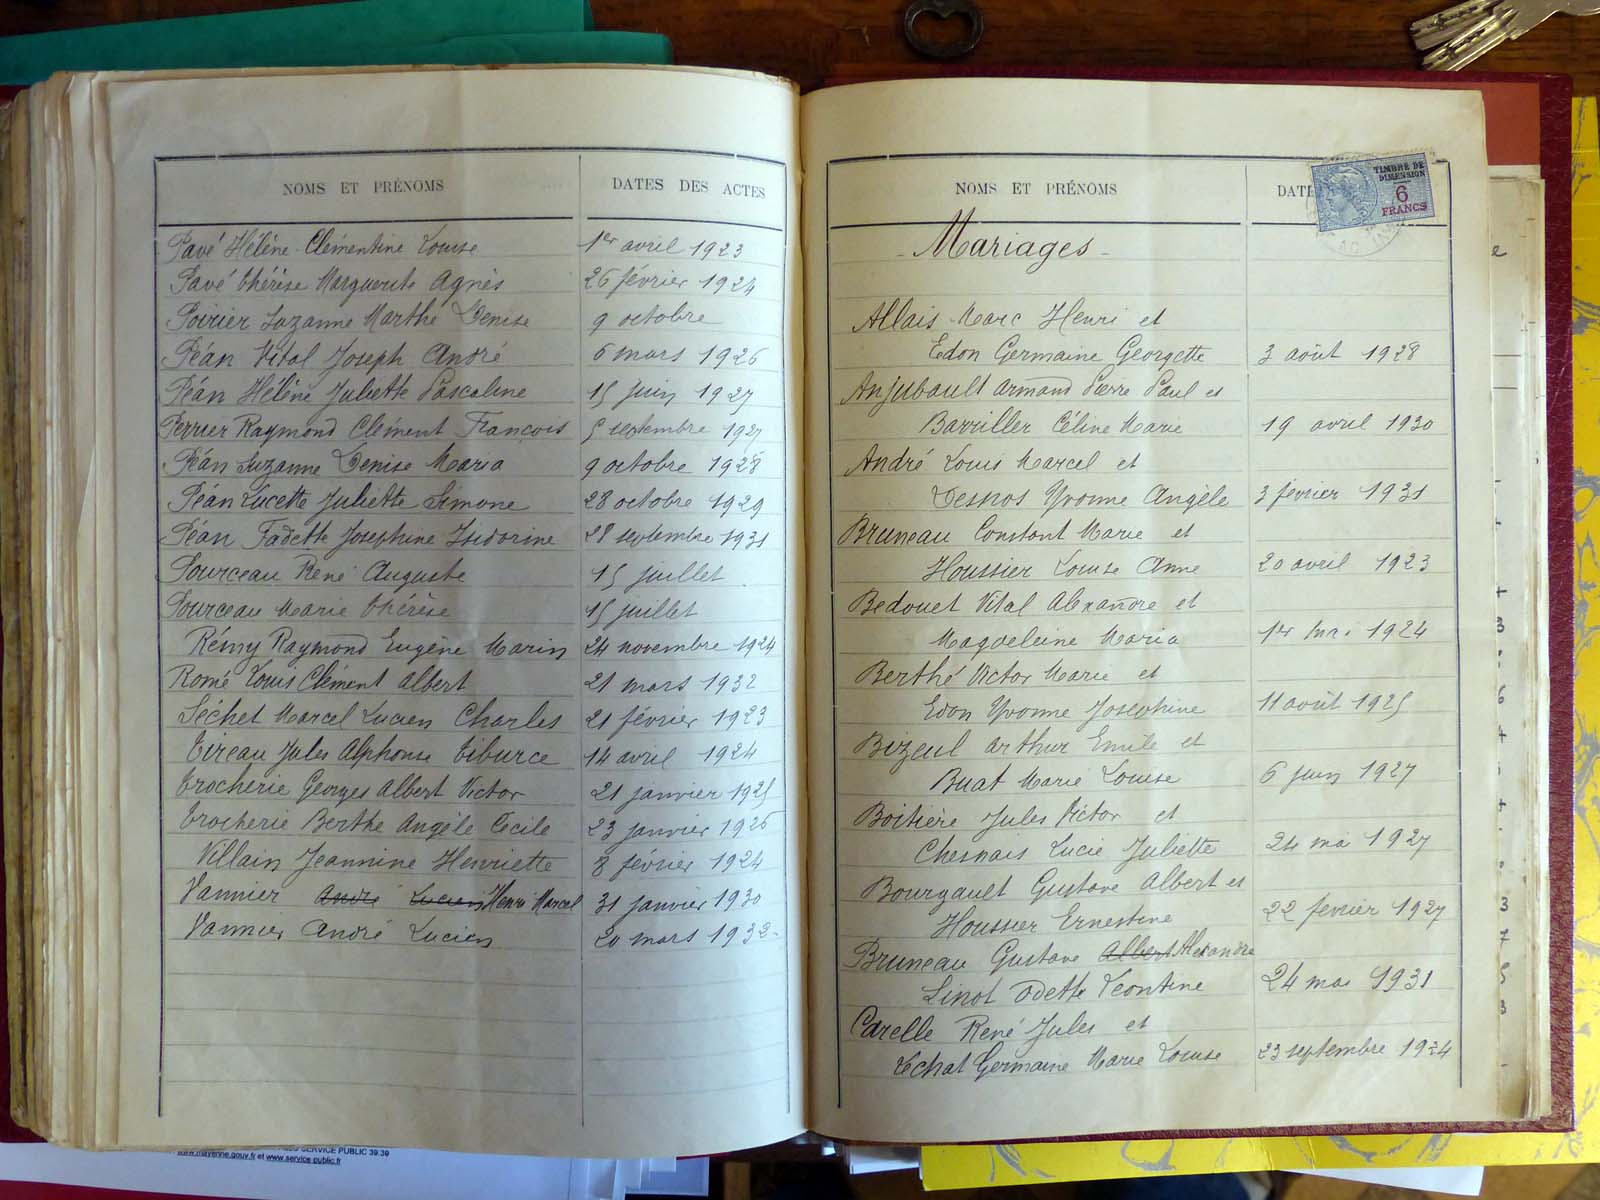 NOMS ET PRÉNOMS DATES DES ACTES
Pavé Hélène Clémentine Louise 1er avril 1923
Pavé Thérèse Marguerite Agnès 26 février 1924
Poirier Suzanne Marthe Denise 9 octobre
Péan Vital Joseph André 6 mars 1926
Péan Hélène Juliette Pascaline 15 juin 1927
Perrier Raymond Clément François 5 septembre 1927
Péan Suzanne Denise Maria 9 octobre 1928
Péan Lucette Juliette Simone 28 octobre 1929
Péan Fadette Josephine Isidorine 28 septembre 1931
Pourceau René Auguste 15 juillet
Pourceau Marie Thérèse 15 juillet
Rémy Raymond Eugène Marin 24 novembre 1924
Romé Louis Clément Albert 21 mars 1932
Séchet Marcel Lucien Charles 21 février 1923
Tireau Jules Alphonse Tiburce 14 avril 1924
Trocherie Georges Albert Victor 21 janvier 1925
Trocherie Berthe Angèle Cecile 23 janvier 1926
Villain Jeannine Henriette 8 février 1924
Vannier André Lucien Henri Marcel 31 janvier 1930
Vannier André Lucien 20 mars 1932
NOMS ET PRÉNOMS DATE
TIMBRE DE
DIMENSION
6
FRANCS
- Mariages -
Allais Marc Henri et
Edon Germaine Georgette 3 août 1928
Anjubault Armand Pierre Paul et
Barriller Céline Marie 19 avril 1930
André Louis Marcel et
Desnos Yvonne Angèle 3 février 1931
Bruneau Constant Marie et
Houssier Louise Anne 20 avril 1923
Bedouet Vital Alexandre et
Magdeleine Maria 1er mai 1924
Berthé Victor Marie et
Edon Yvonne Josephine 11 août 1925
Bizeul Arthur Emile et
Buat Marie Louise 6 juin 1927
Boitière Jules Victor et
Chesnais Lucie Juliette 24 mai 1927
Bourgault Gustave Albert et
Houssier Ernestine 22 fevrier 1927
Bruneau Gustave Albert Alexandre
Linot Odette Leontine 24 mai 1931
Carelle René Jules et
Lechat Germaine Marie Louise 23 septembre 1924
SERVICE PUBLIC 39.39
www.mayenne.gouv.fr et www.service-public.fr